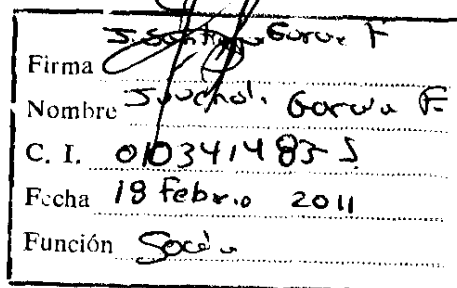 Firma Garcia F
Nombre Garcia F.
C. I. 010341483-5
Fecha 18 Febr.o 2011
Función Socio